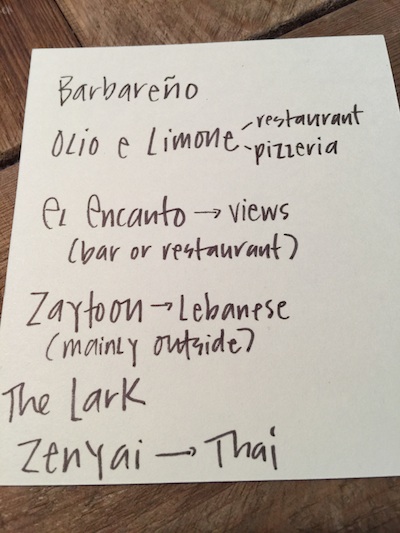 Barbareño
Olio e Limone - restaurant
- pizzeria
El Encanto → views
(bar or restaurant)
Zaytoon → Lebanese
(mainly outside)
The Lark
Zenyai → Thai